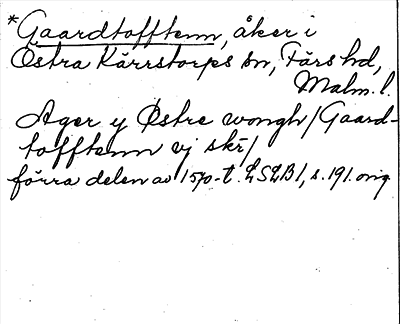 *Gaardtofftenn, åker i
Östra Kärrstorps sn, Färs hd,
Malm. l.
Ager y Østre wongh/Gaard-
tofftenn vj skr/
förra delen av 1570-t. LSLB1, s. 191. orig.